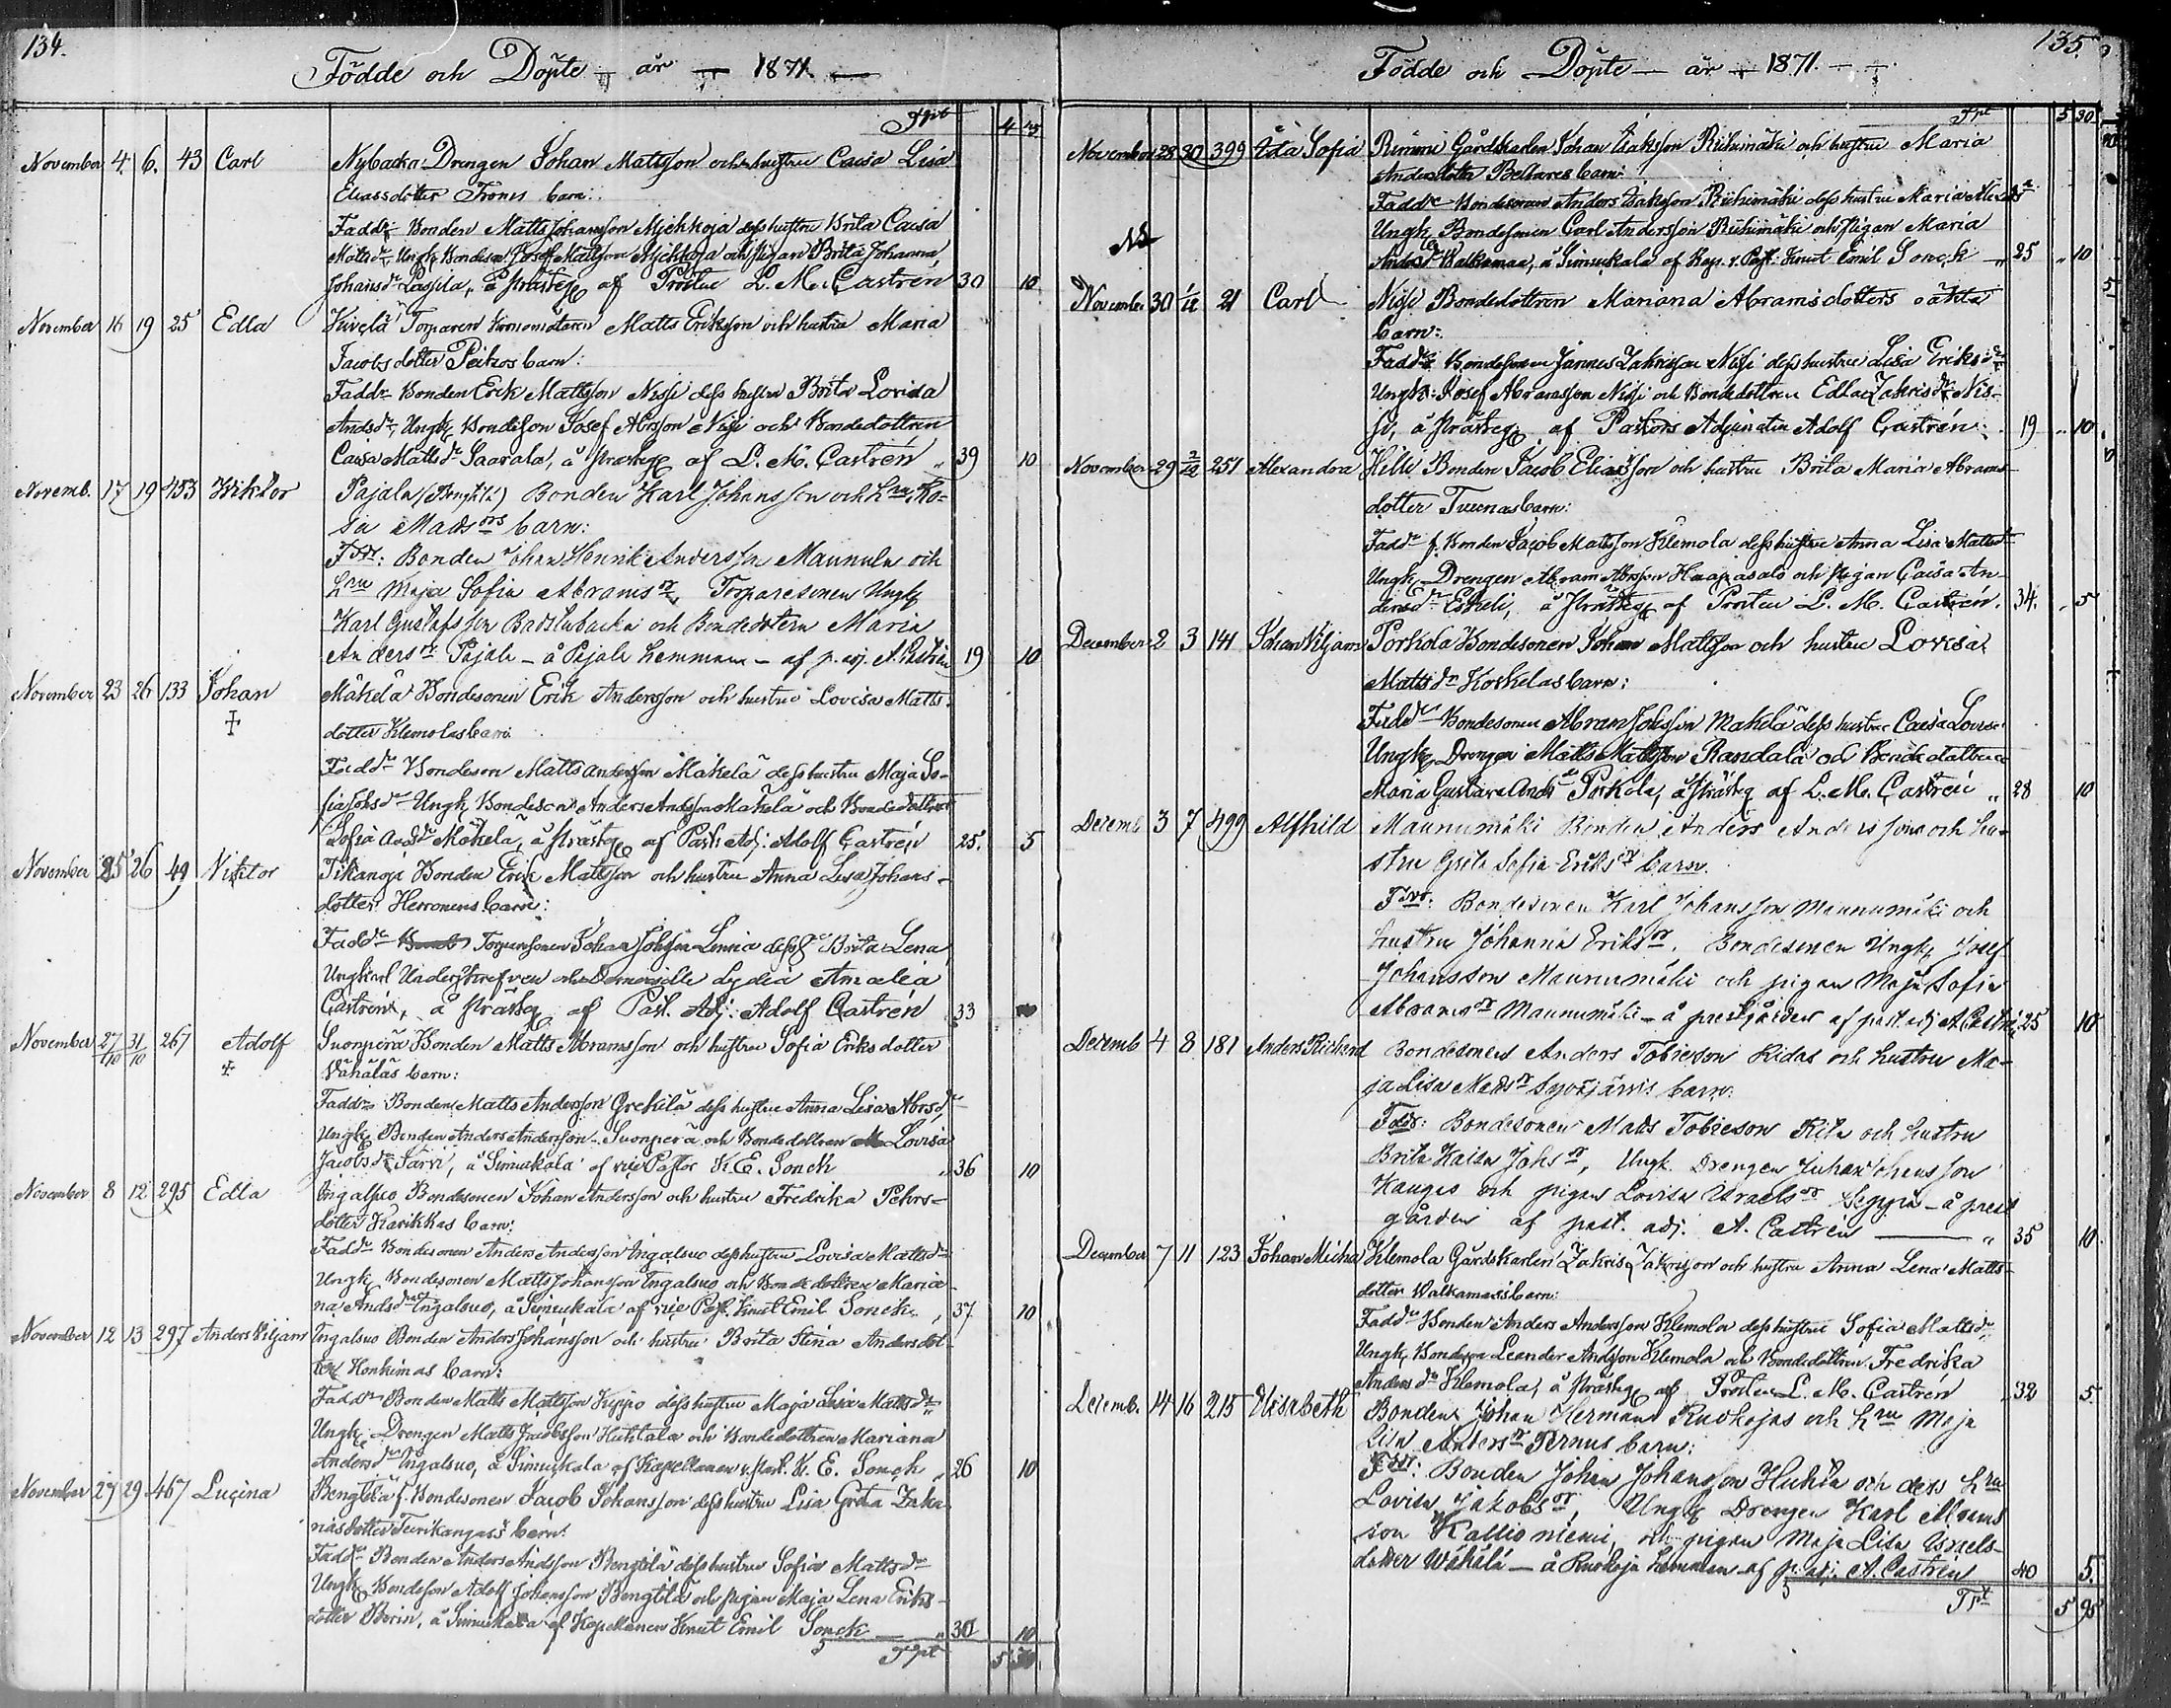 134.
Födde och Döpte år 1871.
Trpt 4
November 4. 6. 43 Carl Nybacka Drengen Johan Mattsson och hustru Caisa Lisa
Eliasdotter barn:
Fadd: Bonden Matts Johansson dess hustru Brita Caisa
Mattsdr, Ungk Bondeson Josef Mattsson och pigan Brita Johanna
Johansdr å Prästeg af Prosten L. M. Castrén 30 10
November 16 19 25 Edla Kivelä Torparen Matts Eriksson och hustru Maria
Jacobsdotter barn:
Faddr Bonden Erik Mattsson Nissi dess hustru Brita Lovisa
Andsdr, Ungk Bondeson Josef Abrsson Nissi och Bondedottren
Caisa Mattsdr Saarala, å Prästeg af L. M. Castrén „ 39 10
Novemb. 17 19 453 Wiktor Pajala Bonden Karl Johansson och hru Ro-
sa Madsdrs barn:
Fddr: Bonden Johan Henrik Andersson Maunula och
hru Maja Sofia Abramsdr, Torparesonen Ungk
Karl Gustafsson och Bondedotern Maria
Andersdr Pajala - å Pajala hemman - af p. adj. A. Castrén 19 10
November 23 26 133 Johan Mäkelä Bondesonen Erik Andersson och hustru Lovisa Matts
dotter Klemolas barn
Faddr Bondeson Matts Andersson Mäkelä dess hustru Maja So-
fia Johsdr Ungk Bondeson Anders Andersson Mäkelä och Bondedottren
Sofia Andsdr Mäkelä, å Prästeg af Past. Adj. Adolf Castrén 25. 5
November 25 26 49 Viktor Tikanoja Bonden Erik Mattsson och hustru Anna Lisa Johans-
dotter Herronens barn:
Faddr Torparesonen Johan Johsson Linna dess h Brita Lena
Ungkarl Underskrefven och Demoiselle Lydia Amalia
Castrén, å Prästeg af Past. Adj. Adolf Castrén 33
November 27/10 31/10 267 Adolf Suonperä Bonden Matts Abramsson och hustru Sofia Eriksdotter
Vähäläs barn:
Faddr Bonden Matts Andersson Grekilä dess hustru Anna Lisa Abrsdr
Ungk Bonden Anders Andersson Suonperä och Bondedottren Lovisa
Jacobsdr Järvi, å Simukala af vice Pastor K. E. Sonck „ 36 10
November 8 12 295 Edla Ingalsuo Bondesonen Johan Andersson och hustru Fredrika Pehrs-
dotter Karikkas barn:
Faddr Bondesonen Anders Andersson Ingalsuo dess hustru Lovisa Mattsdr
Ungk Bondesonen Matts Johansson Ingalsuo och Bondedottren Maria-
na Andsdr Ingalsuo, å Simukala af vice Past. Knut Emil Sonck 37 10
November 12 13 297 Anders Viljam Ingalsuo Bonden Anders Johansson och hustru Brita Stina Andersdot-
ter Honkimas barn:
Faddr Bonden Matts Mattsson Kippo dess hustru Maja Lisa Mattsdr
Ungk Drengen Matts Jacobsson Huhtala och Bondedottren Mariana
Andersdr Ingalsuo, å Simukala af Kapellanen v. past. K. E. Sonck „ 26 10
November 27 29 467 Lucina Bengtilä f. Bondesonen Jacob Johansson dess hustru Lisa Greta Zaka
riasdotter barn:
Faddr Bonden Anders Andsson Bengtilä dess hustru Sofia Mattsdr
Ungk Bondeson Adolf Johansson Bengtilä och pigan Maja Lena Eriks-
dotter å Simukala af Kapellanen Knut Emil Sonck „ 30 10
Trpt 5 30
135.
Födde och Döpte år 1871.
Trpt 5 30
November 28 30 399 Ida Sofia Rimmi Gårdskarlen Johan Isaksson Riihimäki och hustru Maria
Andersdotter barn:
Faddr Bondesonen Anders Isaksson Riihimäki dess hustru Maria
Ungk Bondesonen Carl Andersson Riihimäki och pigan Maria
Andersdr Walkamaa, å Simukala af Kap. v. Past. Knut Emil Sonck „ 25 „ 10
November 30 1/12 21 Carl Nissi Bondedottren Mariana Abramsdotters oäkta
barn:
Faddr Bondesonen Johannes Zakrisson Nissi dess hustru Lisa Eriksdr
Ungk: Josef Abramsson Nissi och Bondedottren Edla Zakrisdr Nis-
si, å Prästeg af Pastors Adjunkten Adolf Castrén 19 „ 10
November 29 2/12 251 Alexandra Hilli Bonden Jacob Eliasson och hustru Brita Maria Abrams
dotter Tuunas barn:
Faddr f. Bonden Jacob Mattsson Klemola dess hustru Anna Lisa Mattsdr
Ungk Drengen Abram Abrsson Haapasalo och pigan Caisa An-
dersdr Eskeli, å Prästeg af Prosten L. M. Castrén. 34. „ 5
December 2 3 141 Johan Viljam Porkola Bondesonen Johan Mattsson och hustru Lovisa
Mattsdr Koskelas barn:
Faddr Bondesonen Abram Johsson Mäkelä dess hustru Caesa Lovisa
Ungk Drengen Matts Mattsson Randala och Bondedottren
Maria Gustava Andsdr Porkola, å Prästeg af L. M. Castrén „ 28 10
Decemb 3 7 499 Alfhild Maunumäki Bonden Anders Anderssons och hu-
stru Greta Sofia Eriksdr barn.
Fddr: Bondesonen Karl Johansson Maunumäki och
hustru Johanna Eriksdr. Bondesonen Ungk Josef
Johansson Maunumäki och pigan Maja Sofia
Abramsdr Maunumäki - å prestgården af past. adj A. Castrén 25 10
Decemb 4 8 181 Anders Richard Bondesonen Anders Tobiesson Ridas och hustru Ma-
ja Lisa Madsdr barn.
Fddr: Bondesonen Mads Tobieson Rita och hustru
Brita Kaisa Johsdr, Ungk. Drengen Juhan Johansson
Kauges och pigan Lovisa Israelsdr Seppä - å prest
gården af past. adj. A. Castrén „ 35 10
December 7 11 123 Johan Michael Klemola Gårdskarlen Zakris Zakrisson och hustru Anna Lena Matts-
dotter Walkamas barn:
Faddr Bonden Anders Andersson Klemola dess hustru Sofia Mattsdr
Ungk Bondeson Leander Andsson Klemola och Bondedottren Fredrika
Andersdr Klemola, å Prästeg af Prosten L. M. Castrén 32 5.
Decemb. 14 16 215 Elisabeth Bonden Johan Herman Ruokojas och hru Maja
Lisa Andersdr Pernus barn:
Fddr: Bonden Johan Johansson Huhta och dess hru
Lovisa Jakobsdr, Ungk Drengen Karl Abrams
son Kallioniemi, och pigan Maja Lisa Israels-
dotter Wähälä - å Ruokoja hemman af p. adj. A. Castrén 40 5.
Trpt 5 95